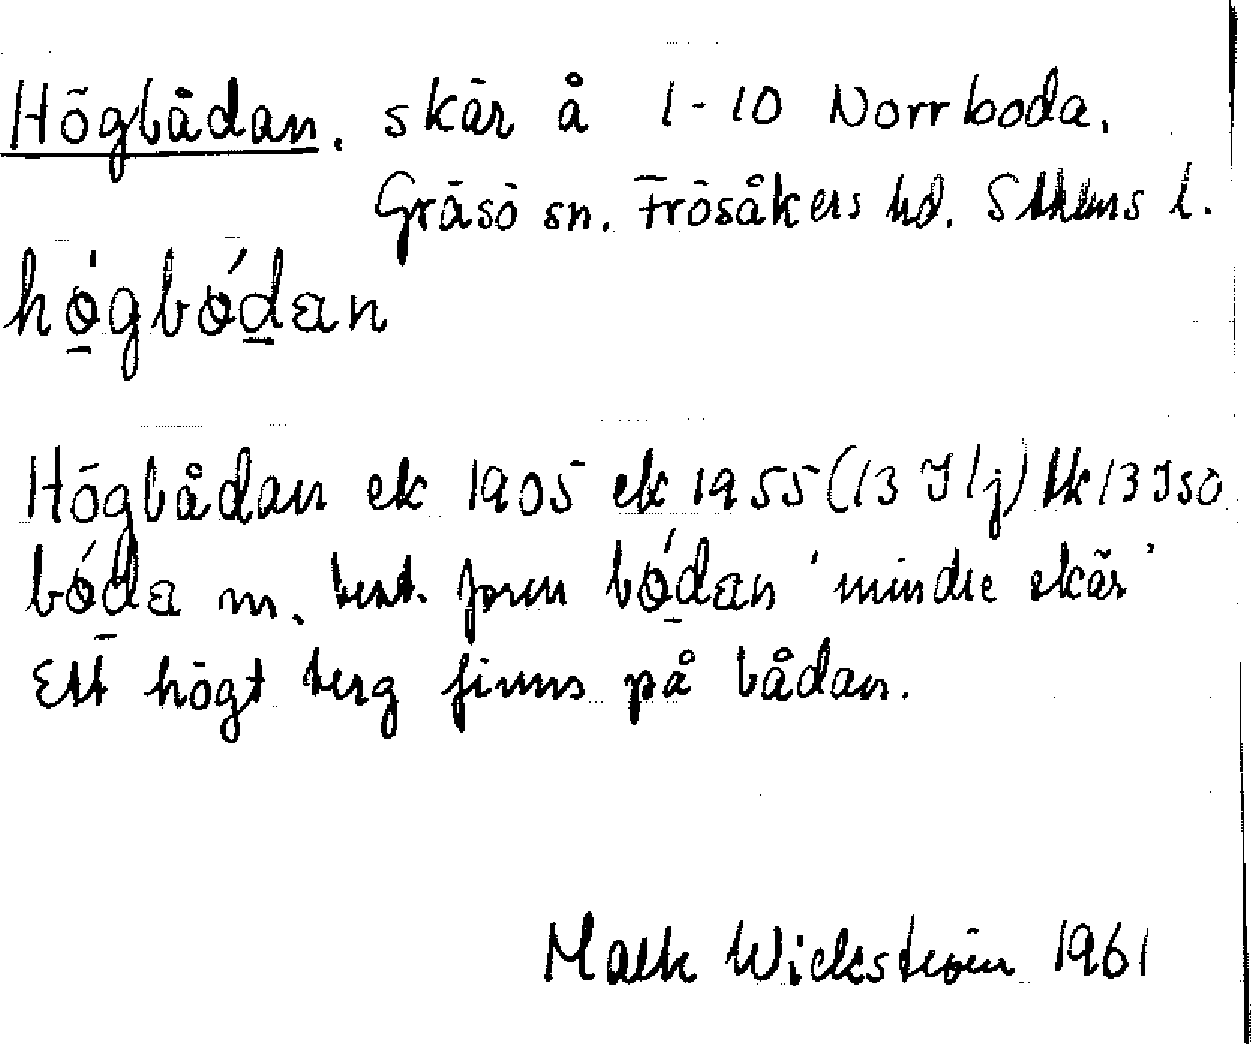 Högbådan. skär å 1-10 Norrboda.
Gräsö sn. Frösåkers hd. Sthlms l.
hǿgbǿdan
Högbådan ek 1905 ek 1955 (13 I 1j) tk 13 I so
bǿda m. best. form bǿdan 'mindre skär'
Ett högt berg finns på bådan.
Wickström 1961